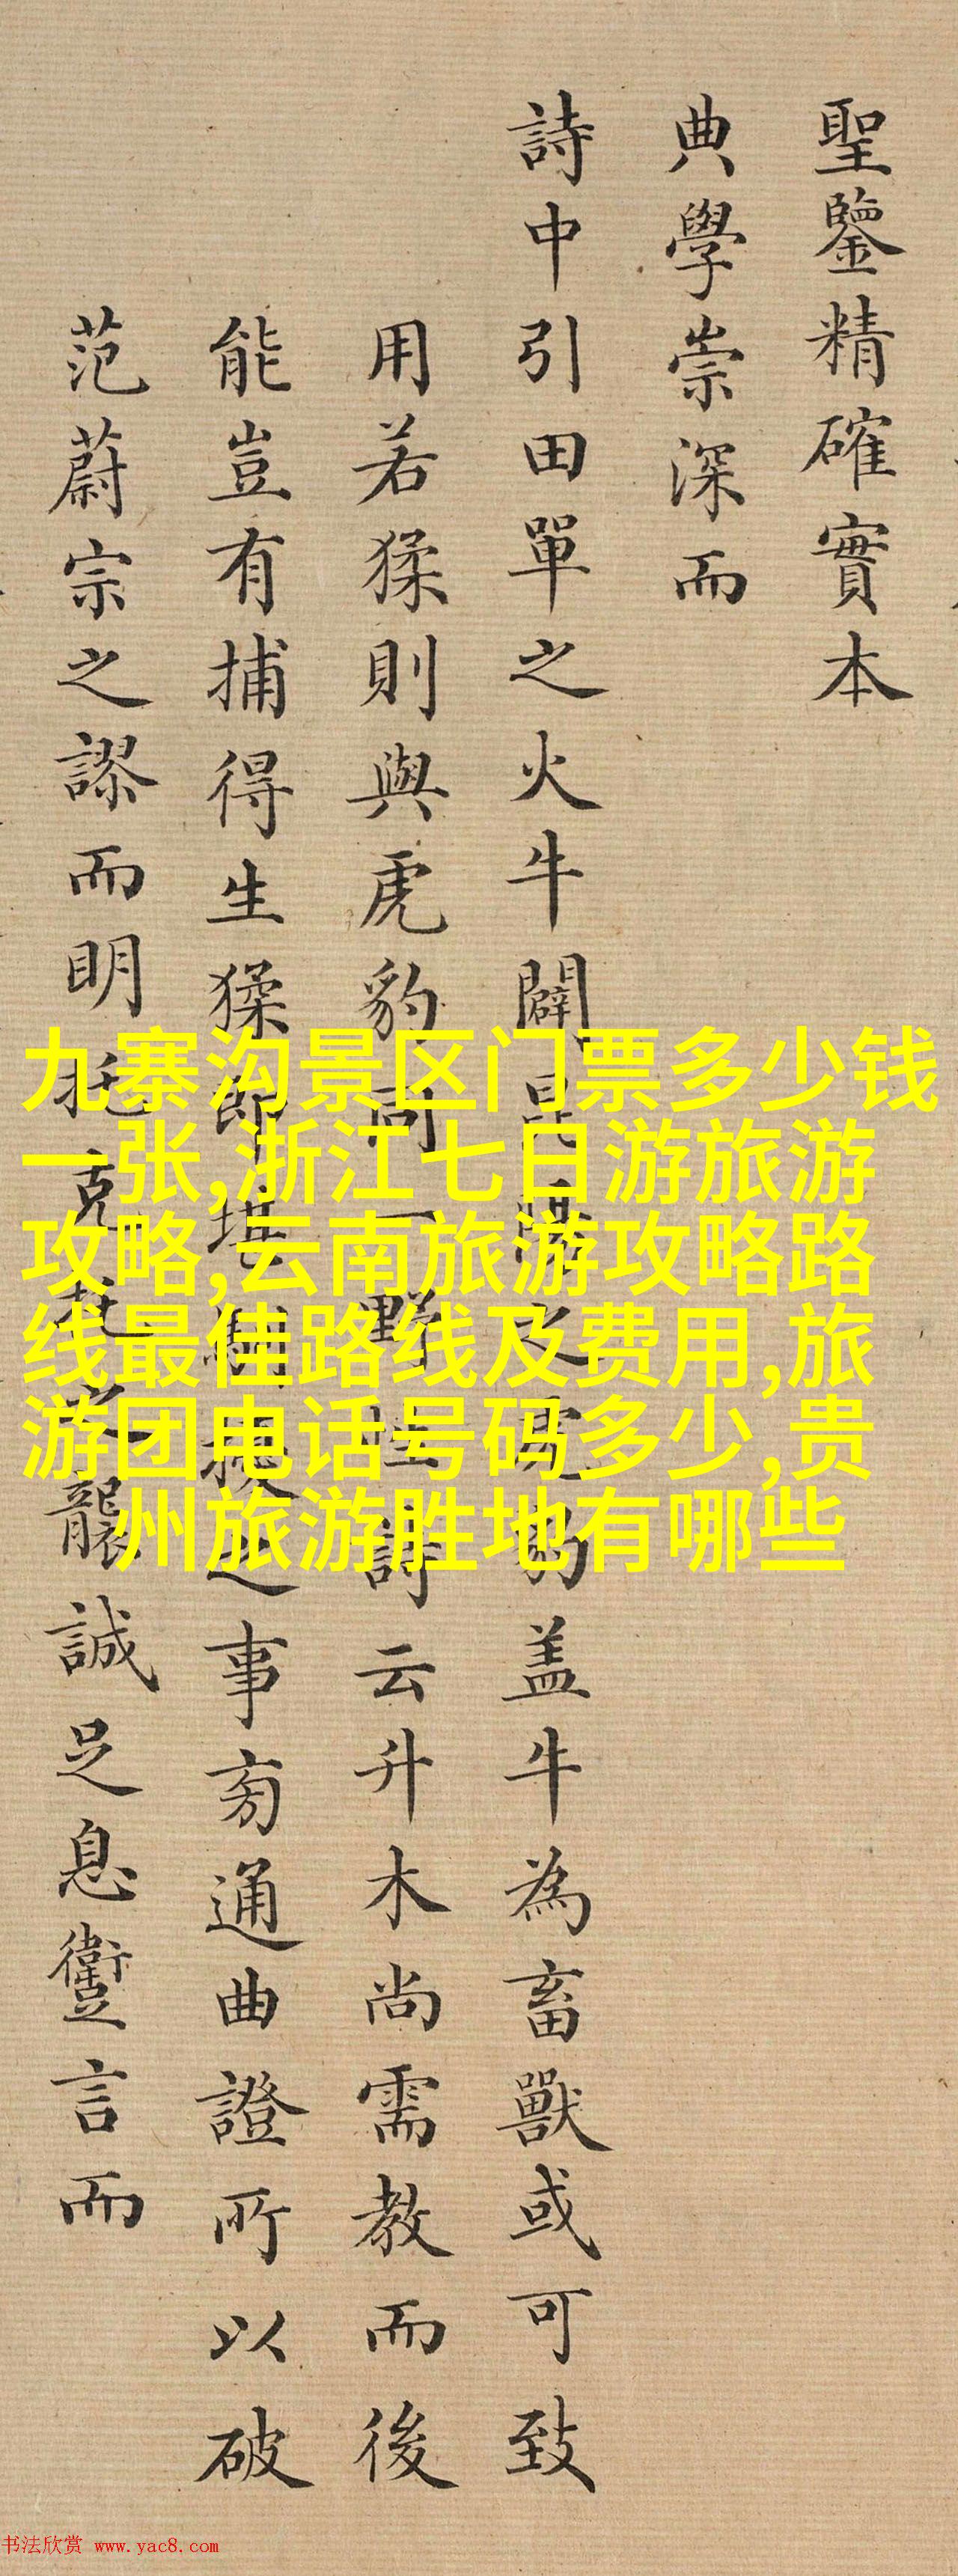 聖鑒精確實本
典學崇深而
詩中引田單之火牛闢昆陽之虎豹盖牛為畜獸或可致
用若猱則與虎豹同一野性詩云升木尚需教而後
能豈有捕得生猱即堪之事旁通曲證所以破
范蔚宗之謬而明托克托之襲誠足息讆言而
九寨沟景区门票多少钱
一张,浙江七日游旅游
攻略,云南旅游攻略路
线最佳路线及费用,旅
游团电话号码多少,贵
州旅游胜地有哪些
书法欣赏 www.yac8.com